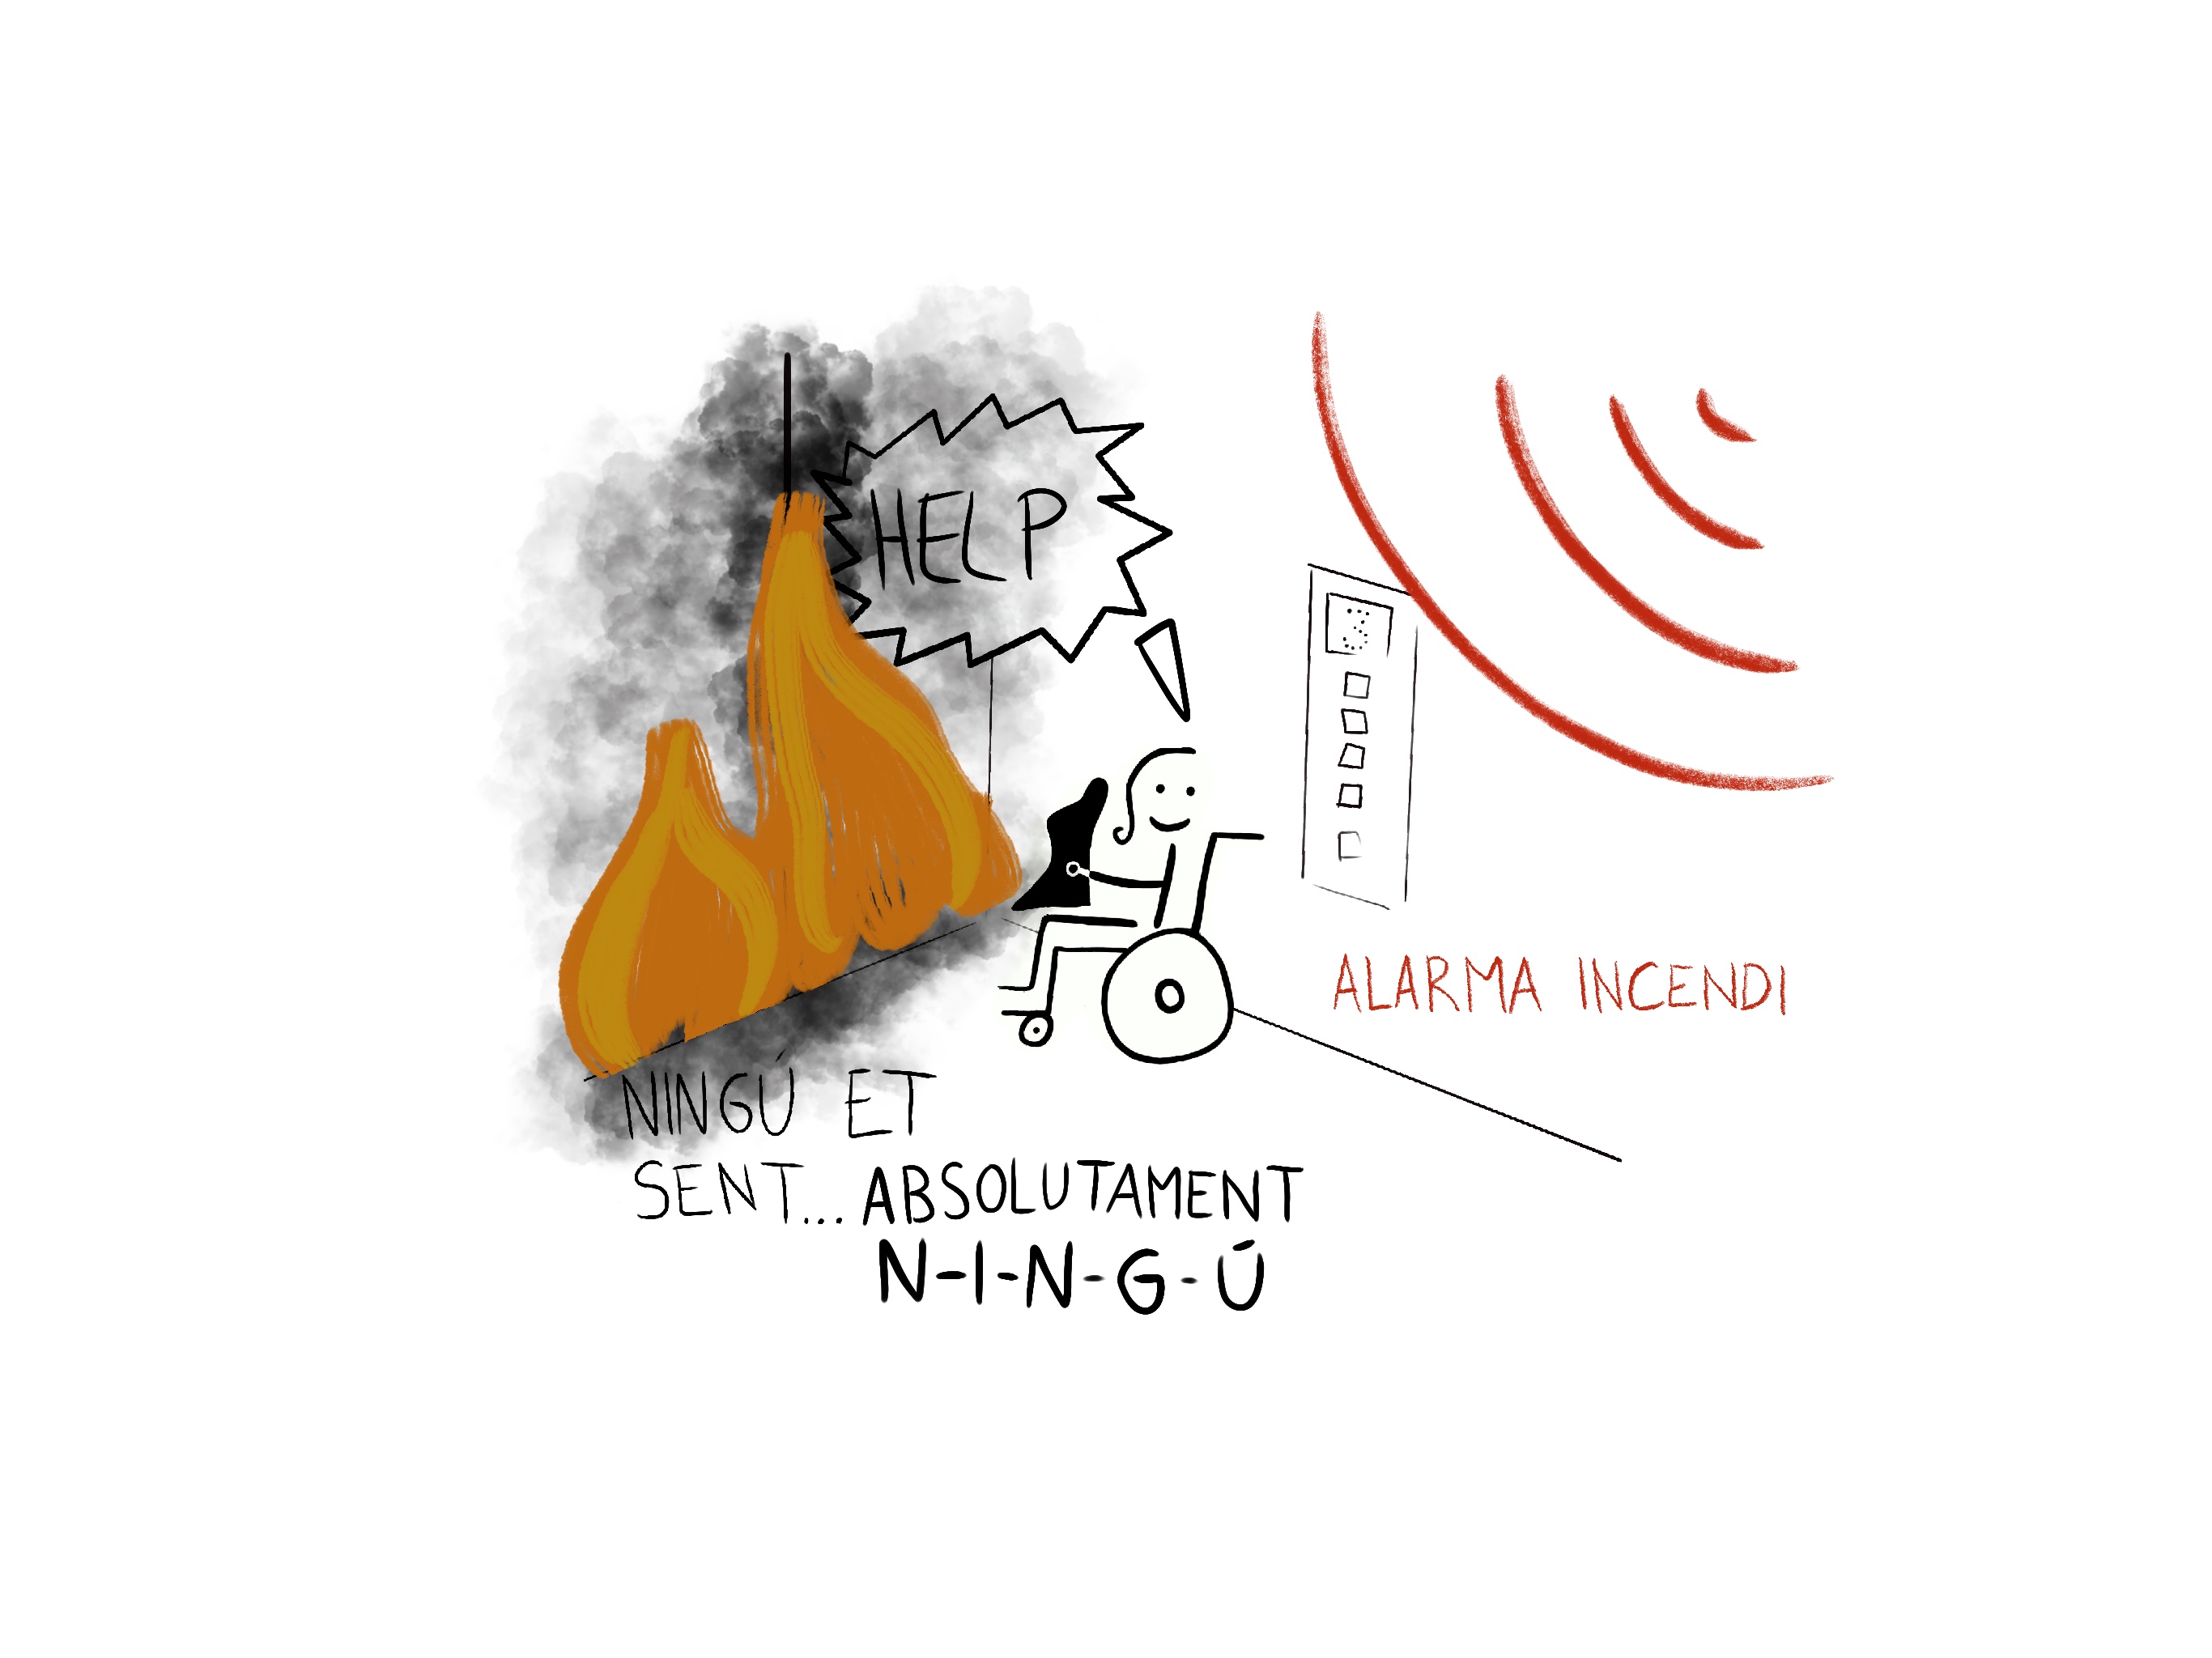 HELP
3
ALARMA INCENDI
NINGÚ ET
SENT... ABSOLUTAMENT
N-I-N-G-Ú